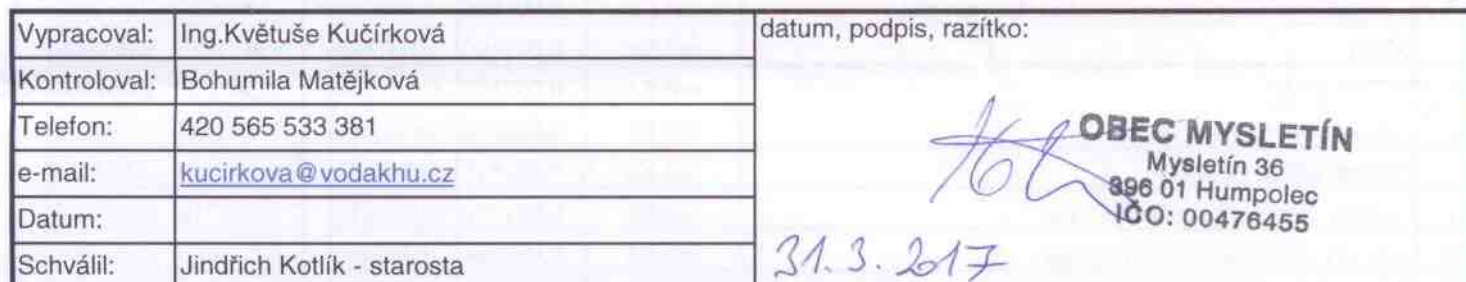 Vypracoval: Ing.Květuše Kučírková
Kontroloval: Bohumila Matějková
Telefon: 420 565 533 381
e-mail: kucirkova@vodakhu.cz
Datum:
Schválil: Jindřich Kotlík - starosta
datum, podpis, razítko:
OBEC MYSLETÍN
Mysletín 36
396 01 Humpolec
IČO: 00476455
31.3.2017